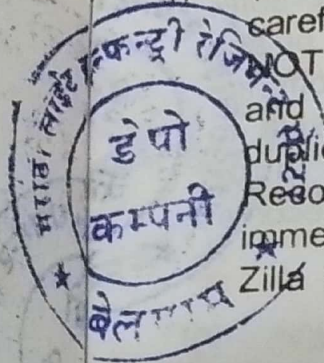 मराठा लाईट इन्फन्ट्री रेजिमेन्ट
डेपो
कम्पनी
बेलगाम
caref
NOT
and
duplic
Reco
imme
Zilla